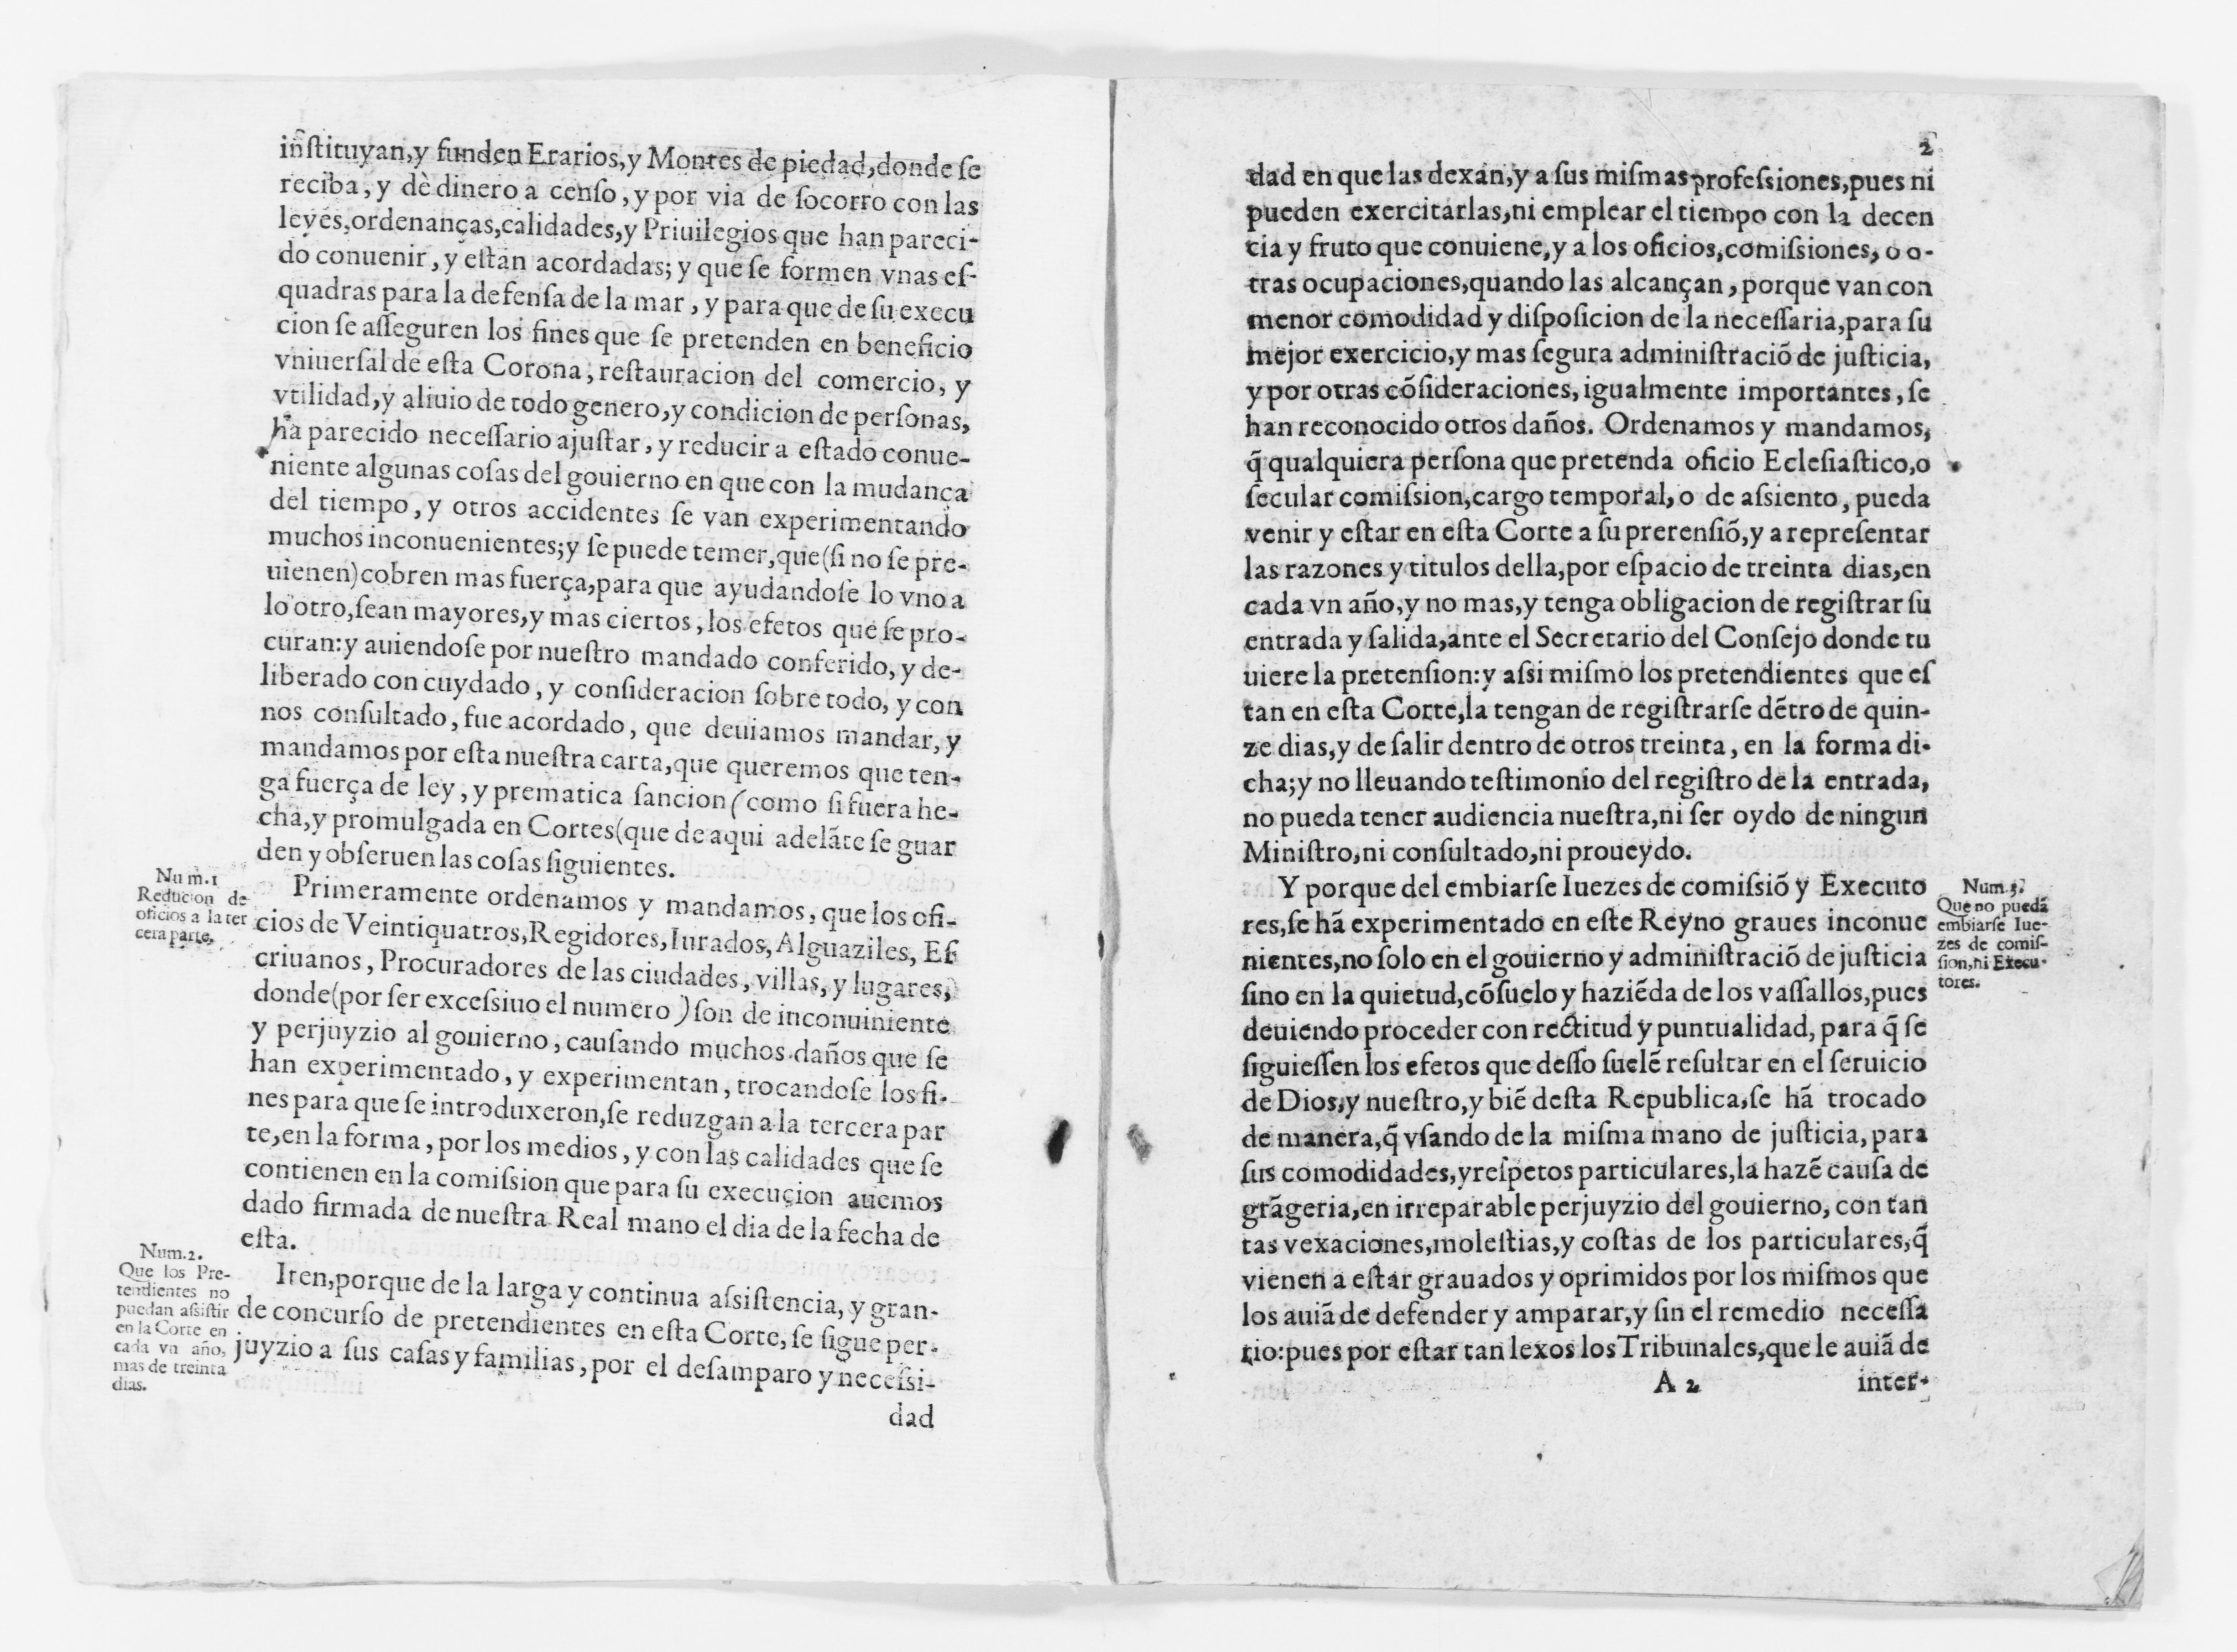 inſtituyan,y funden Erarios,y Montes de piedad,donde ſe
reciba, y dè dinero a cenſo, y por via de ſocorro con las
leyes,ordenanças,calidades,y Priuilegios que han pareci-
do conuenir, y eſtan acordadas; y que ſe formen vnas eſ-
quadras para la defenſa de la mar, y para que de ſu execu
cion ſe aſſeguren los fines que ſe pretenden en beneficio
vniuerſal de eſta Corona, reſtauracion del comercio, y
vtilidad,y aliuio de todo genero,y condicion de perſonas,
ha parecido neceſſario ajuſtar, y reducir a eſtado conue-
niente algunas coſas del gouierno en que con la mudança
del tiempo, y otros accidentes ſe van experimentando
muchos inconuenientes;y ſe puede temer,que(ſi no ſe pre-
uienen)cobren mas fuerça,para que ayudandoſe lo vno a
lo otro,ſean mayores,y mas ciertos, los efetos que ſe pro-
curan:y auiendoſe por nueſtro mandado conferido, y de-
liberado con cuydado, y conſideracion ſobre todo, y con
nos conſultado, fue acordado, que deuiamos mandar, y
mandamos por eſta nueſtra carta,que queremos que ten-
ga fuerça de ley, y prematica ſancion (como ſi fuera he-
cha,y promulgada en Cortes(que de aqui adelãte ſe guar
den y obſeruen las coſas ſiguientes.
Num.1
Reducion de
oficios a la ter
cera parte.
Primeramente ordenamos y mandamos, que los ofi-
cios de Veintiquatros,Regidores,Iurados,Alguaziles, Eſ
criuanos, Procuradores de las ciudades, villas, y lugares,
donde(por ſer exceſsiuo el numero )ſon de inconuiniente
y perjuyzio al gouierno, cauſando muchos daños que ſe
han experimentado, y experimentan, trocandoſe los fi-
nes para que ſe introduxeron,ſe reduzgan a la tercera par
te,en la forma, por los medios, y con las calidades que ſe
contienen en la comiſsion que para ſu execucion auemos
dado firmada de nueſtra Real mano el dia de la fecha de
eſta.
Num.2.
Que los Pre-
tendientes no
puedan aſsiſtir
en la Corte en
cada vn año,
mas de treinta
dias.
Iten,porque de la larga y continua aſsiſtencia, y gran-
de concurſo de pretendientes en eſta Corte, ſe ſigue per-
juyzio a ſus caſas y familias, por el deſamparo y neceſsi-
dad
2
dad en que las dexan,y a ſus miſmas profeſsiones,pues ni
pueden exercitarlas,ni emplear el tiempo con la decen
cia y fruto que conuiene,y a los oficios,comiſsiones, o o-
tras ocupaciones,quando las alcançan, porque van con
menor comodidad y diſpoſicion de la neceſſaria,para ſu
mejor exercicio,y mas ſegura adminiſtraciõ de juſticia,
y por otras cõſideraciones, igualmente importantes, ſe
han reconocido otros daños. Ordenamos y mandamos,
q̃ qualquiera perſona que pretenda oficio Ecleſiaſtico,o
ſecular comiſsion,cargo temporal, o de aſsiento, pueda
venir y eſtar en eſta Corte a ſu prerenſiõ,y a repreſentar
las razones y titulos della,por eſpacio de treinta dias,en
cada vn año,y no mas,y tenga obligacion de regiſtrar ſu
entrada y ſalida,ante el Secretario del Conſejo donde tu
uiere la pretenſion:y aſsi miſmo los pretendientes que eſ
tan en eſta Corte,la tengan de regiſtrarſe dẽtro de quin-
ze dias,y de ſalir dentro de otros treinta, en la forma di-
cha;y no lleuando teſtimonio del regiſtro de la entrada,
no pueda tener audiencia nueſtra,ni ſer oydo de ningun
Miniſtro,ni conſultado,ni proueydo.
Y porque del embiarſe Iuezes de comiſsiõ y Executo
res,ſe hã experimentado en eſte Reyno graues inconue
nientes,no ſolo en el gouierno y adminiſtraciõ de juſticia
ſino en la quietud,cõſuelo y haziẽda de los vaſſallos,pues
deuiendo proceder con rectitud y puntualidad, para q̃ ſe
ſiguieſſen los efetos que deſſo ſuelẽ reſultar en el ſeruicio
de Dios,y nueſtro,y biẽ deſta Republica,ſe hã trocado
de manera,q̃ vſando de la miſma mano de juſticia, para
ſus comodidades,y reſpetos particulares,la hazẽ cauſa de
grãgeria,en irreparable perjuyzio del gouierno, con tan
tas vexaciones,moleſtias,y coſtas de los particulares,q̃
vienen a eſtar grauados y oprimidos por los miſmos que
los auiã de defender y amparar,y ſin el remedio neceſſa
rio:pues por eſtar tan lexos los Tribunales,que le auiã de
Num.3.
Que no puedã
embiarſe Iue-
zes de comiſ-
ſion,ni Execu-
tores.
A 2 inter-